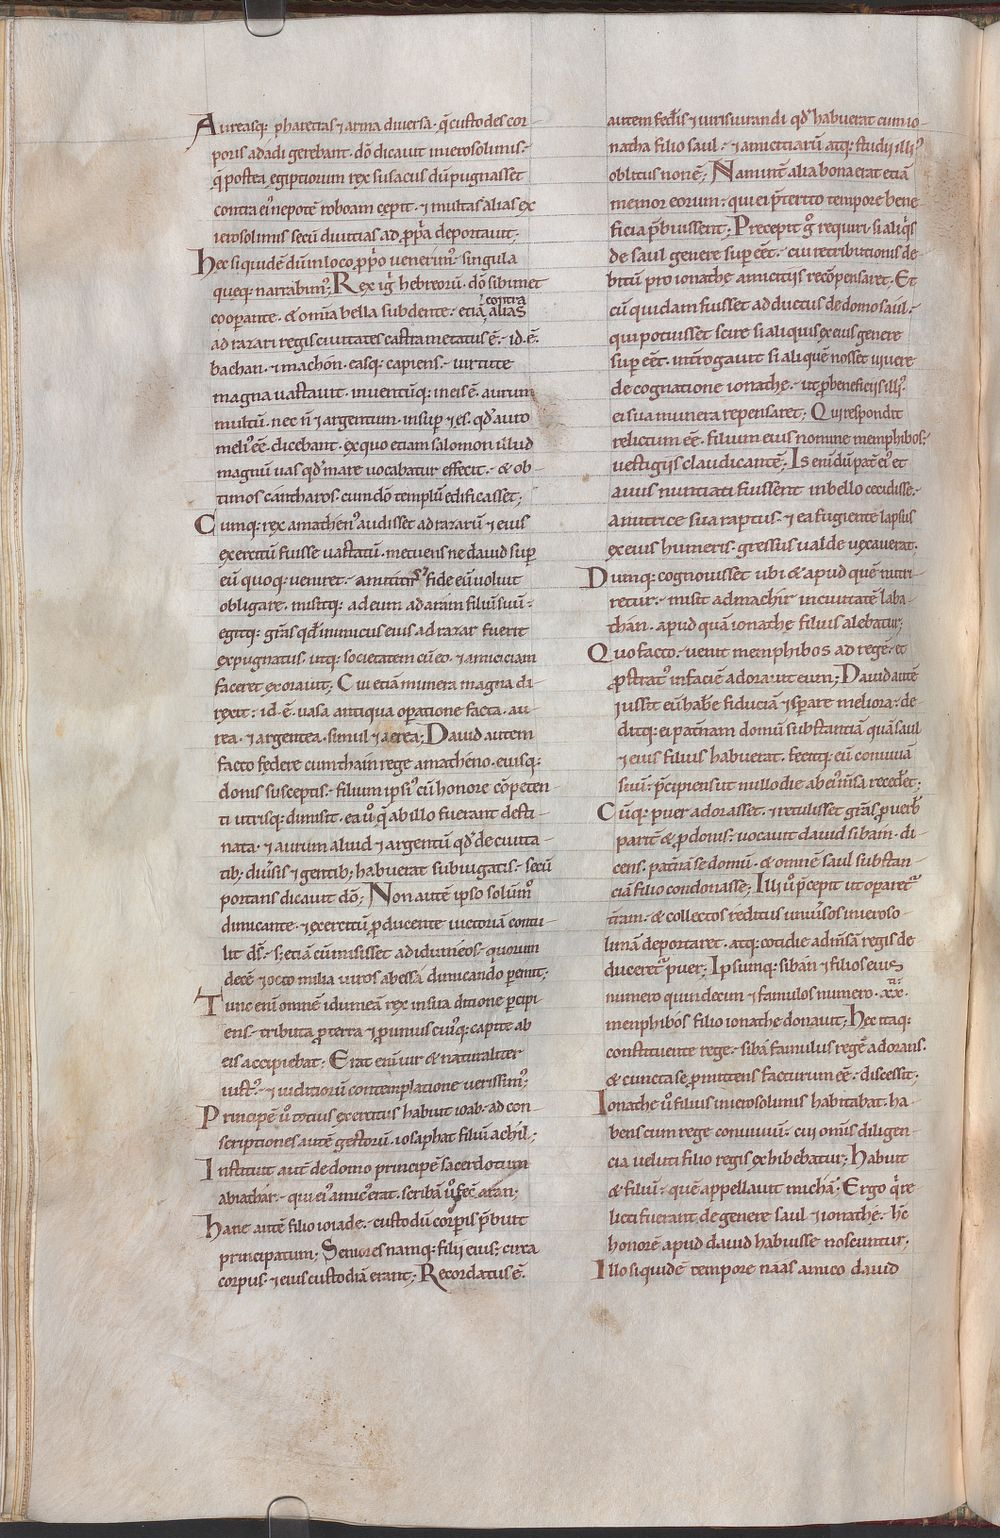 Aureasq; pharetras ⁊ arma diuersa. q̄ custodes cor-
poris adadi gerebant. dō dicauit inierosolimis.
q̄ postea egiptiorum rex susacus dū pugnasset
contra ei' nepotē roboam cepit. ⁊ multas alias ex
ierosolimis secū diuitias ad ꝓp̄a deportauit;
Hec siquidē dum loco ꝓp̄o uenerim' singula
queq; narrabim'; Rex igr̄ hebreorū. dō sibimet
cooperante. & om̄ia bella subdente. etiā contra alias
adrazari regis ciuitates castrametatus ē. id. ē.
bachan. ⁊ machon. easq; capiens. uirtute
magna uastauit. inuentūq; ineis ē. aurum
multū. nec n̄ ⁊ argentum. insup̱ ⁊ es. qd' auro
meli' eē. dicebant. exquo etiam salomon illud
magnū uas qd' mare uocabatur effecit. & ob-
timos cantharos. cum dō templū edificasset;
Cumq; rex amathen' audisset adrazarū ⁊ eius
exercitū fuisse uastatū. metuens ne dauid sup̱
eū quoq; ueniret. amicitię fide eū uoluit
obligare. misitq; ad eum adaram filiū suū.
egitq; grās qd' inimicus eius adrazar fuerit
expugnatus. utq; societatem cū eo. ⁊ amiciciam
faceret exorauit; Cui etiā munera magna di-
rexit. id. ē. uasa antiqua op̱atione facta. au-
rea. ⁊ argentea. simul ⁊ aerea; Dauid autem
facto federe cum thain rege amatheno. eiusq;
donis susceptis. filium ipsi' cū honore cōpeten-
ti utrisq; dimisit. ea u° q̄ ab illo fuerant desti-
nata. ⁊ aurum aliud ⁊ argentū qd' de ciuita-
tib; diūsis ⁊ gentib; habuerat subiugatis. secū
portans dicauit dō; Non autē ipso solum°
dimicante. ⁊ exercitū ꝑducente uictoriā contu-
lit ds̄. s; etiā cū misisset ad idumeos. quorum
decē ⁊ octo milia uiros abessa dimicando ꝑemit;
Tunc enī omnē idumeā rex insua ditione ꝑcipi-
ens. tributa ꝓ terra ⁊ ꝓ unius cui'q; capite ab
eis accipiebat; Erat enī uir & naturaliter
iust'. ⁊ iuditiorū contemplatione uerissim';
Principē u° toti us exercitus habuit ioab. ad con-
scriptiones autē gestorū. iosaphat filiū achil;
Instituit aut̄ de domo principē sacerdotum
abiathar. qui ei' amic' erat. scribā u° fec̄ aran;
hane autē filio ioiade. custodū corp̱is p̄buit
principatum; Seniores namq; filii eius; circa
corpus. ⁊ eius custodiā erant; Recordatus ē.
autem fed'is ⁊ iurisiurandi qd' habuerat cum io-
natha filio saul. ⁊ amicitiarū atq; studii illi'
oblitus non ē; Nam int̄ alia bona erat etiā
memor eorum. qui ei p̄terito tempore bene-
ficia p̄buissent; Precepit g° requiri si aliq̄s
de saul genere sup̱ eēt. cui retributionis de-
bitū pro ionathe amicitiis recōpensaret. Et
cū quidam fuisset adductus de domo saul.
qui potuisset scire si aliquis ex eius genere
sup̱ eēt. int̄rogauit si aliquē nosset uiuere
de cognatione ionathe. ut ꝓ beneficiis illi'
ei sua munera repensaret; Qui respondit
relictum eē. filium eius nomine memphibos.
uestigiis claudicantē; Is enī dū pat̄ ei' et
auus nuntiati fuissent inbello cecidisse.
anutrice sua raptus. ⁊ ea fugiente lapsus
ex eius humeris. gressus ualde uexauerat.
Dumq; cognouisset ubi & apud quē nutri-
retur. misit ad machir inciuitatē laba-
than. apud quā ionathę filius alebatur;
Quo facto. uenit memphibos ad regē. et
ꝓstrat' infaciē adorauit eum; Dauid autē
iussit eū hab̄e fiduciā ⁊ sp̱are meliora. de-
ditq; ei pat̄nam domū substantiā quā saul
⁊ eius filius habuerat. fecitq; eū conuiuā
suū. p̄cipiens ut nullo die ab ei' m̄sa recederet;
Cūq; puer adorasset. ⁊ retulisset grās ꝓ uerb'
parit̄ & ꝓ donis. uocauit dauid sibam. di-
cens. pat̄nā se domū. & omnē saul substan-
ciā filio condonasse; Illi u° p̄cepit ut op̱aret
t̄ram. & collectos reditus uniūsos inieroso-
limā deportaret. atq; cotidie ad m̄sā regis de-
duceret' puer; Ipsumq; sibān ⁊ filios eius
numero quindecim ⁊ famulos numero. xx.
memphibos filio ionathe donauit; Hec itaq;
constituente rege. siba famulus regē adorans.
& cuncta se ꝓmittens facturum eē. discessit;
Ionathe u° filius inierosolimis habitabat. ha-
bens cum rege conuiuiū. cui om̄is diligen-
cia ueluti filio regis exhibebatur; Habuit
& filiū. quē appellauit michā. Ergo q̄ re-
licti fuerant de genere saul ⁊ ionathe. hc̄
honorē apud dauid habuisse noscuntur;
Illo siquidē tempore naas amico dauid